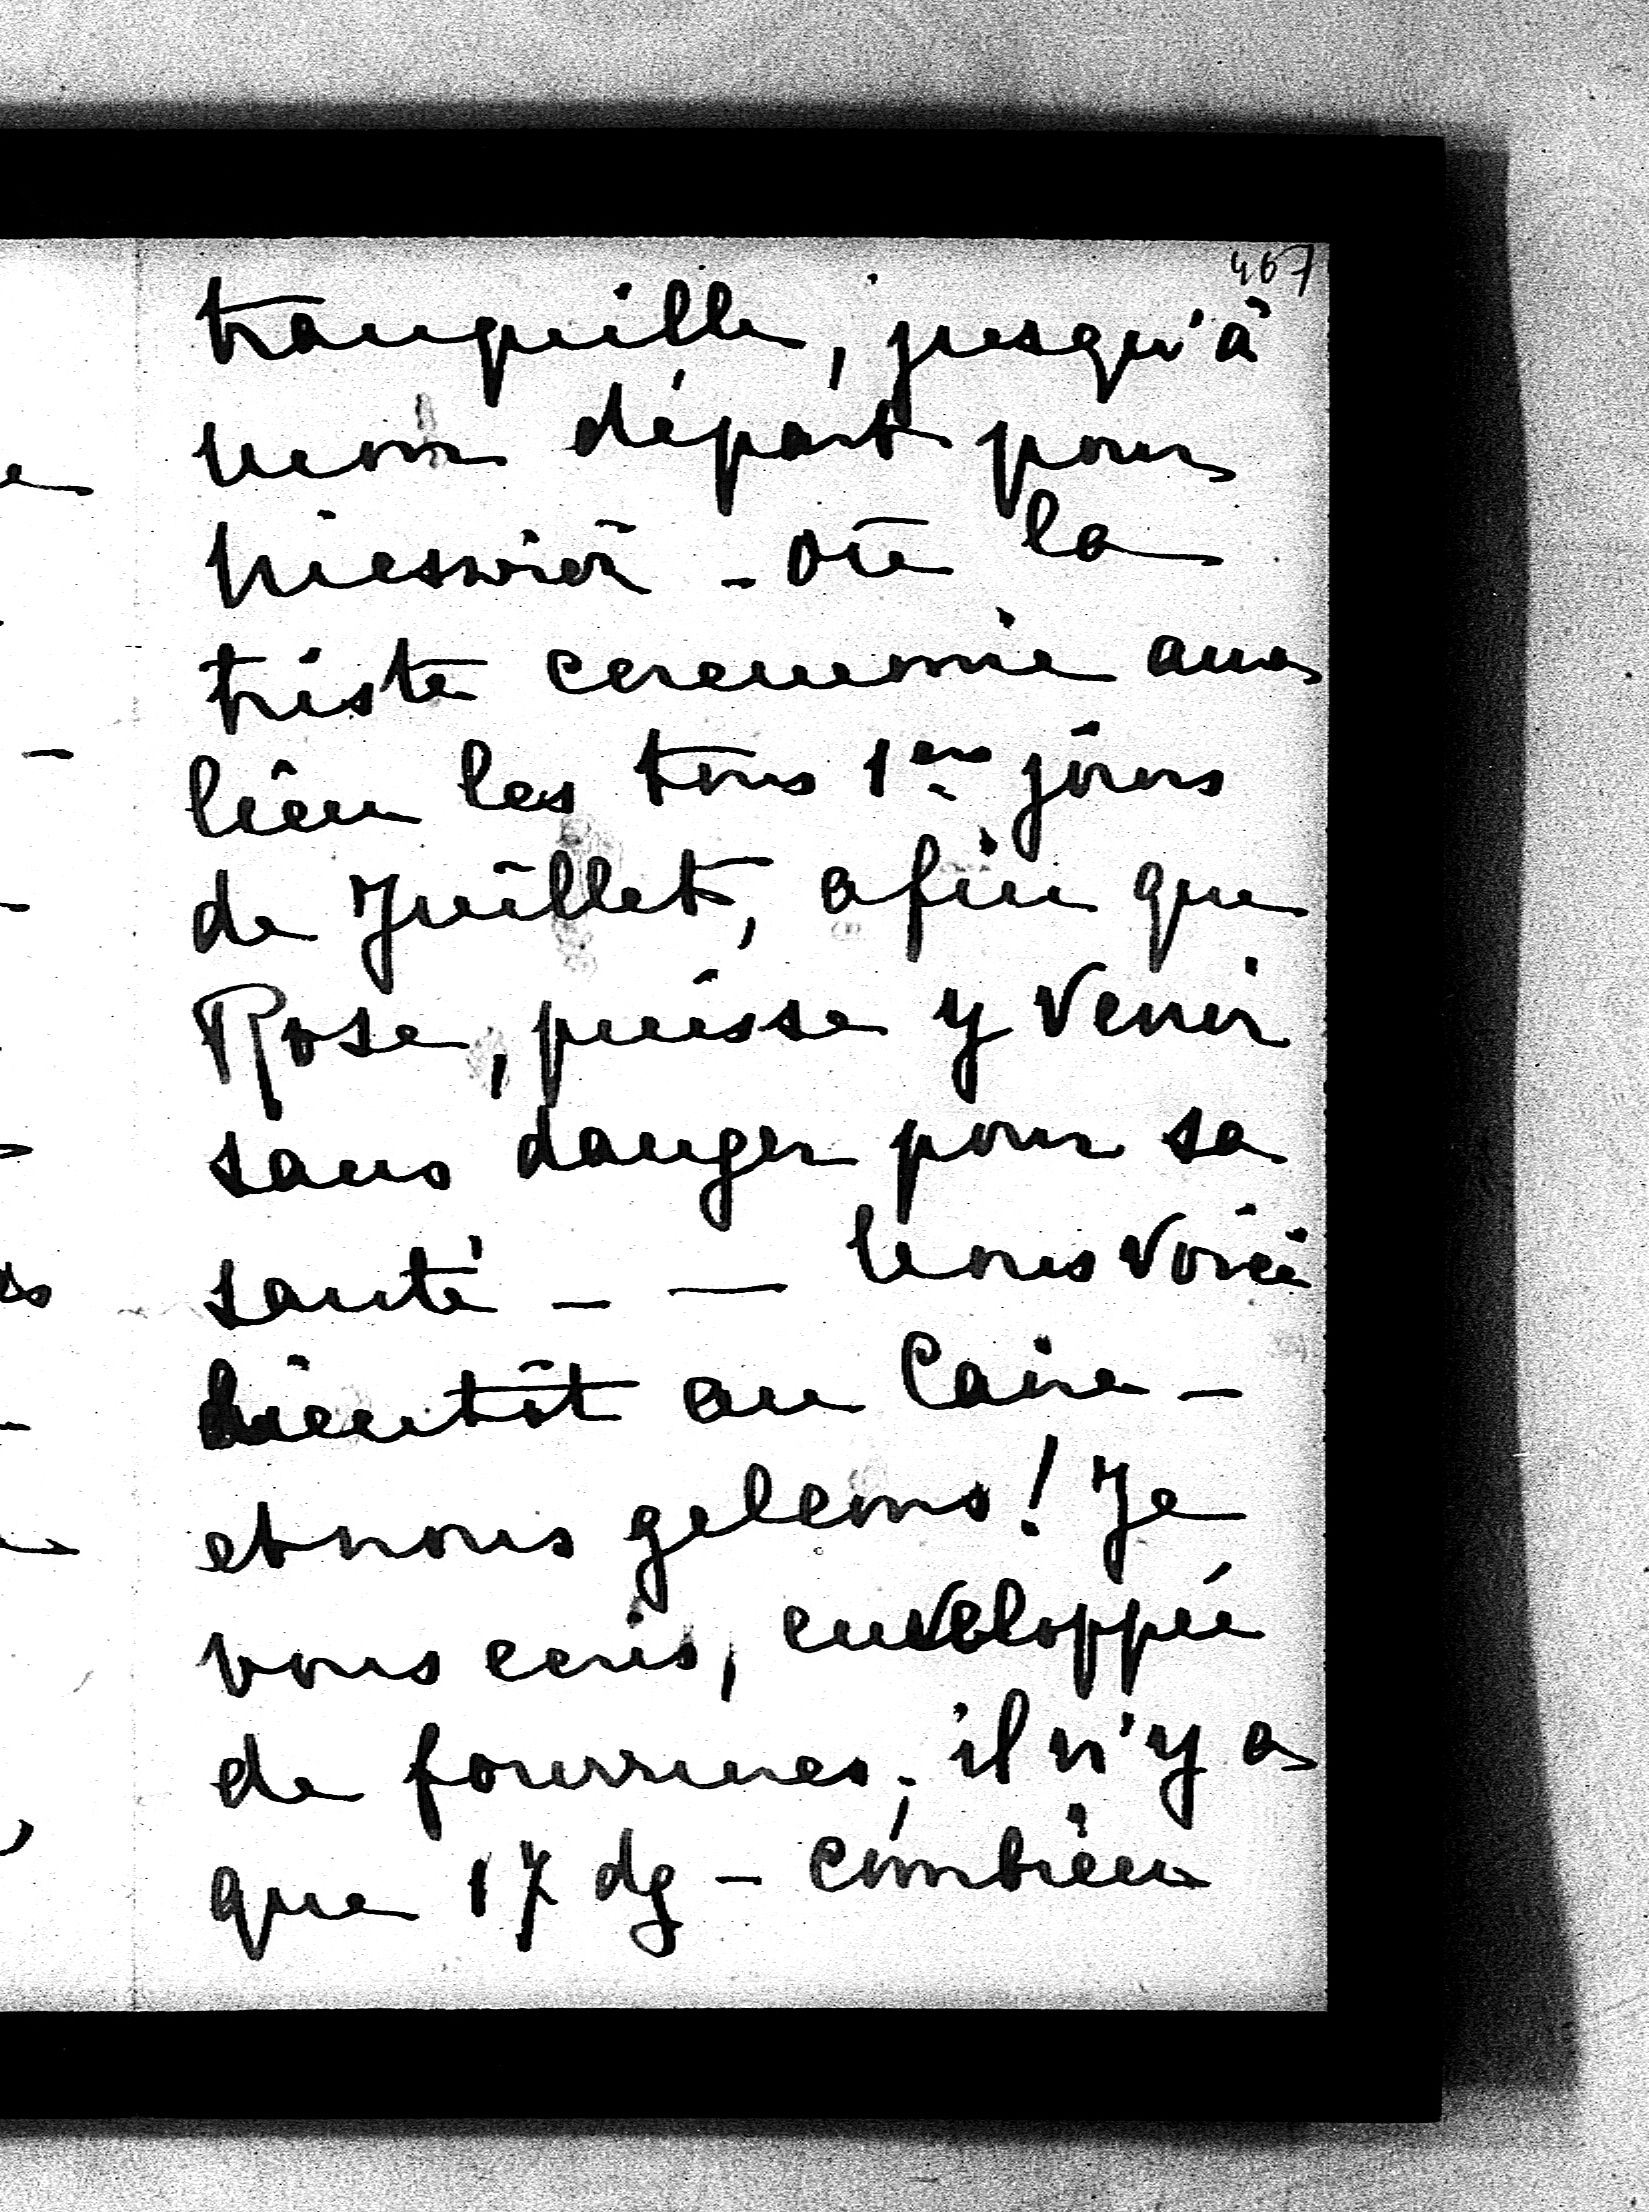 467
tranquille, jusqu'à
mon départ pour
Nieswiez - où la
triste ceremonie aura
lieu les tous 1ers jours
de Juillet, afin que
Rose, puisse y venir
sans danger pour sa
santé - — Nous voici
bientôt au Caire -
et nous gelons! Je
vous ecris, enveloppée
de fourrures; il n'y a
que 17 dg - combien